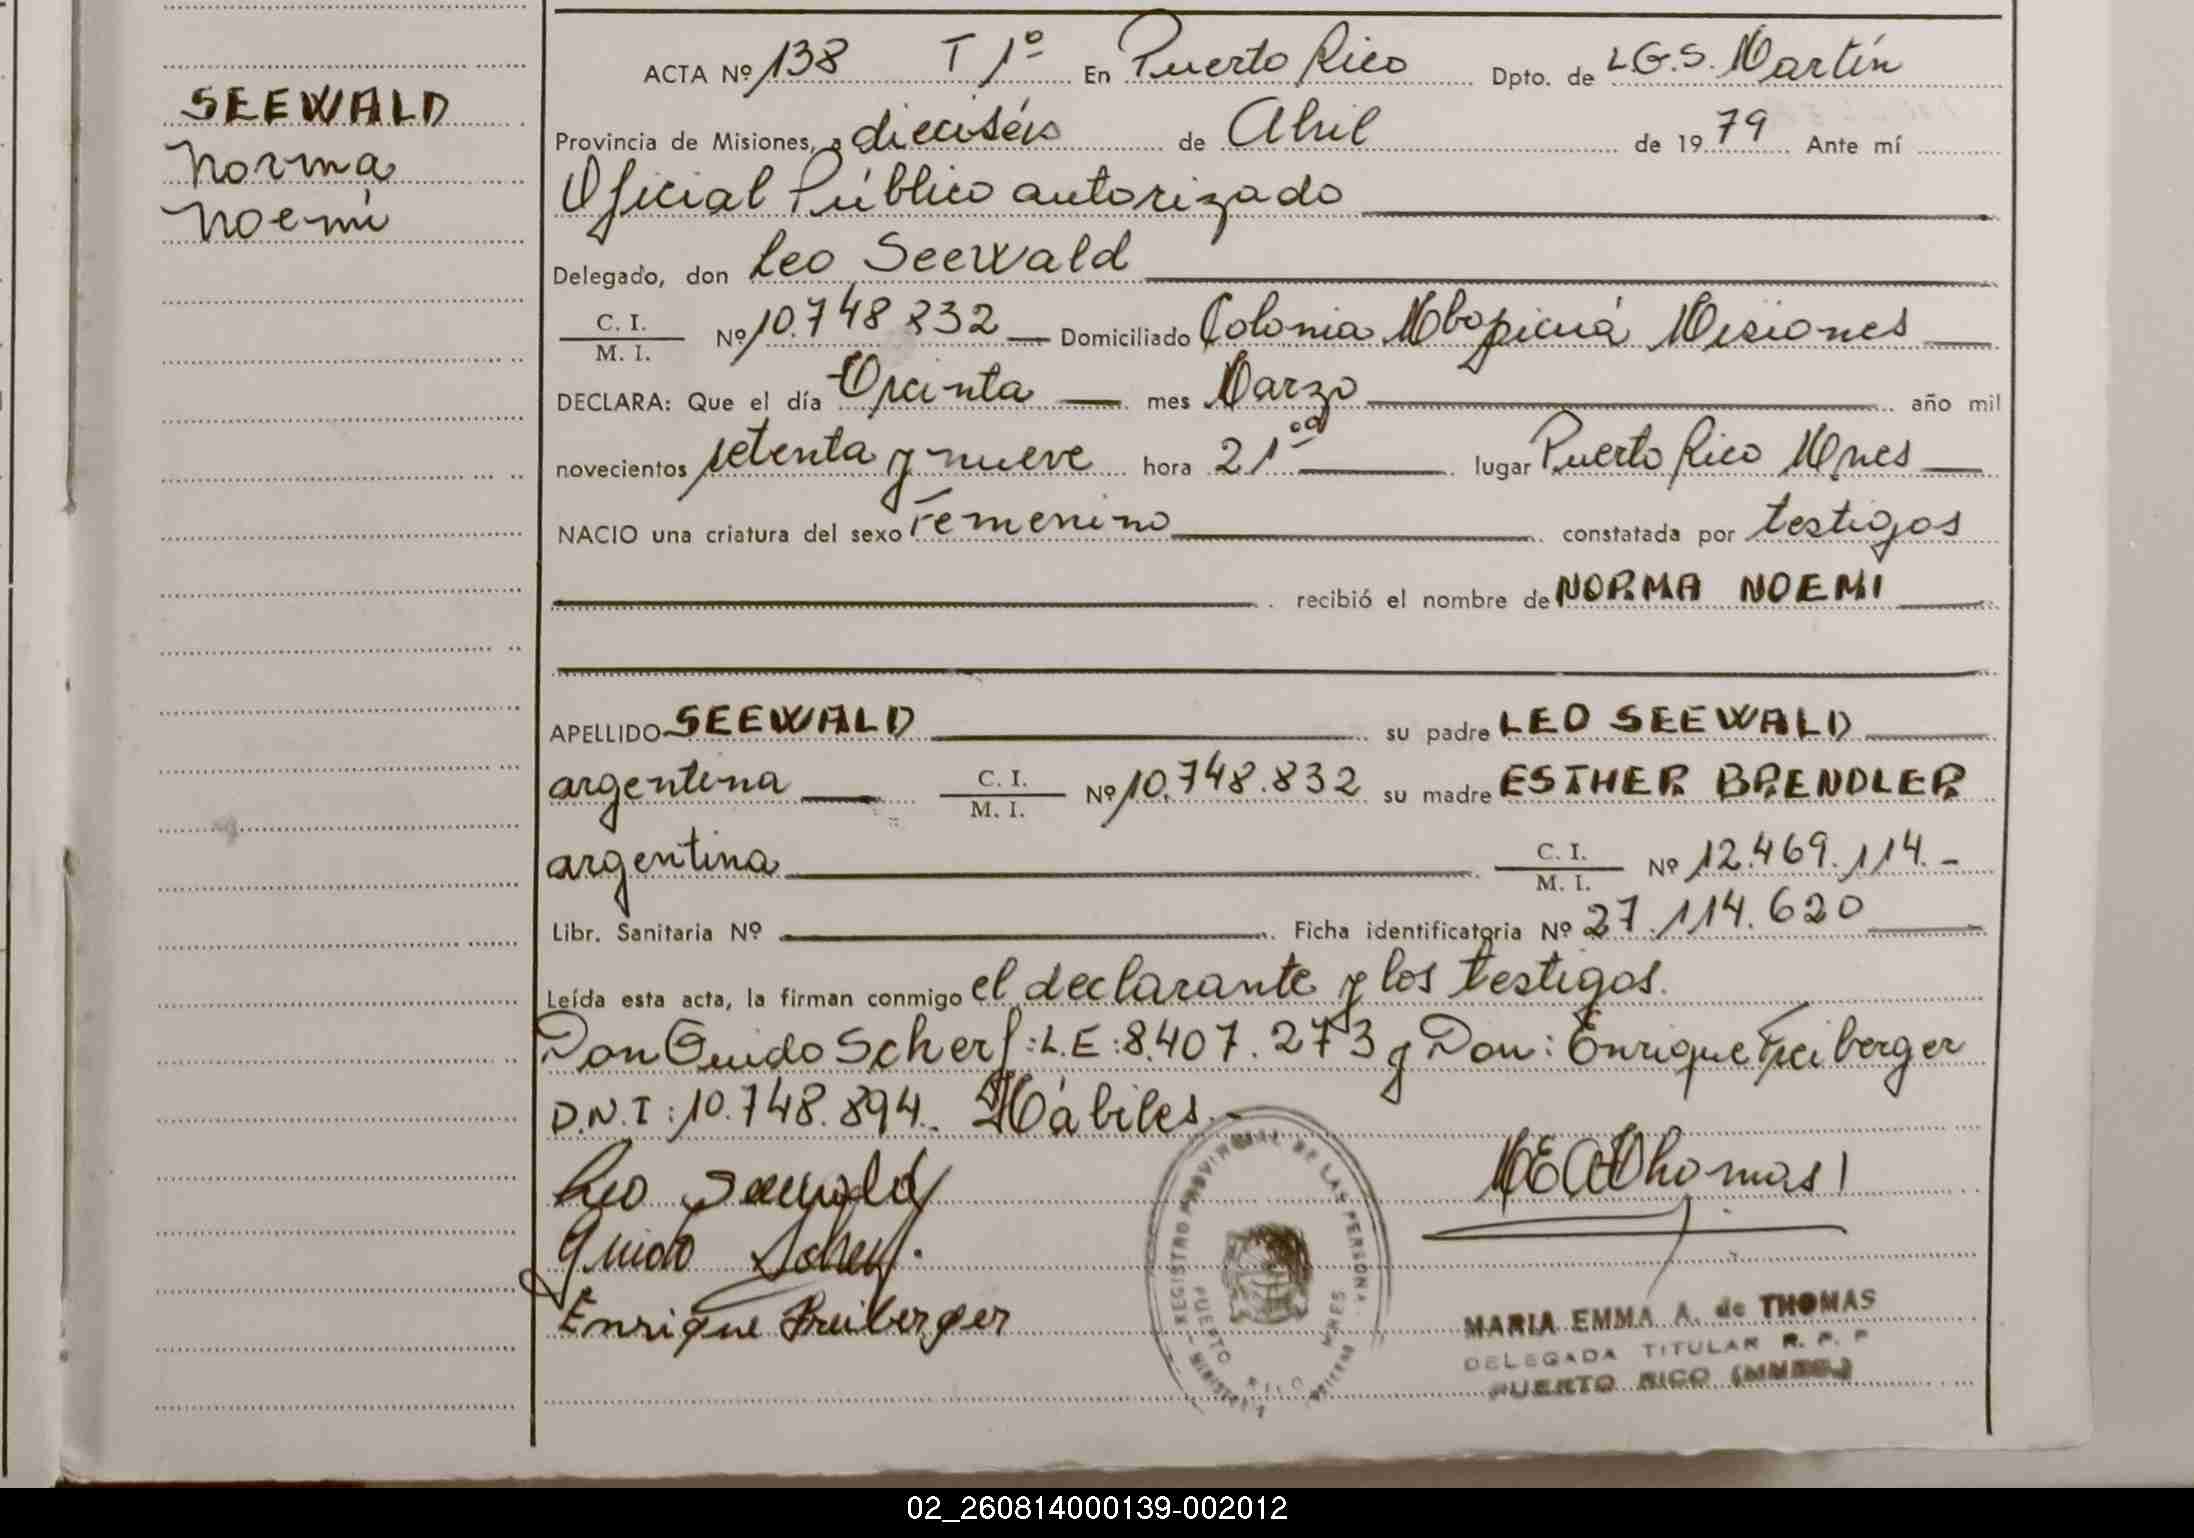 SEEWALD
Norma
Noemi
ACTA Nº 138 T 1º En Puerto Rico Dpto. de L.G.S. Martín
Provincia de Misiones, a dieciséis de Abril de 1979 Ante mí
Oficial Público autorizado
Delegado, don Leo Seewald
C. I. / M. I. Nº 10.748.832 Domiciliado Colonia Mbopicuá Misiones
DECLARA: Que el día Treinta mes Marzo año mil
novecientos setenta y nueve hora 21 lugar Puerto Rico Mnes
NACIO una criatura del sexo Femenino constatada por testigos
recibió el nombre de NORMA NOEMI
APELLIDO SEEWALD su padre LEO SEEWALD
argentina C. I. / M. I. Nº 10.748.832 su madre ESTHER BRENDLER
argentina C. I. / M. I. Nº 12.469.114.-
Libr. Sanitaria Nº Ficha identificatoria Nº 27.114.620
Leída esta acta, la firman conmigo el declarante y los testigos.
Don Guido Scherf: L.E: 8.407.273 y Don: Enrique Freiberger
D.N.I: 10.748.894. Hábiles.-
Leo Seewald
Guido Scherf.
Enrique Freiberger
MEAThomas
REGISTRO PROVINCIAL DE LAS PERSONAS
PUERTO RICO MNES
MARIA EMMA A. de THOMAS
DELEGADA TITULAR R. P. P
PUERTO RICO (MNES.)
02_260814000139-002012